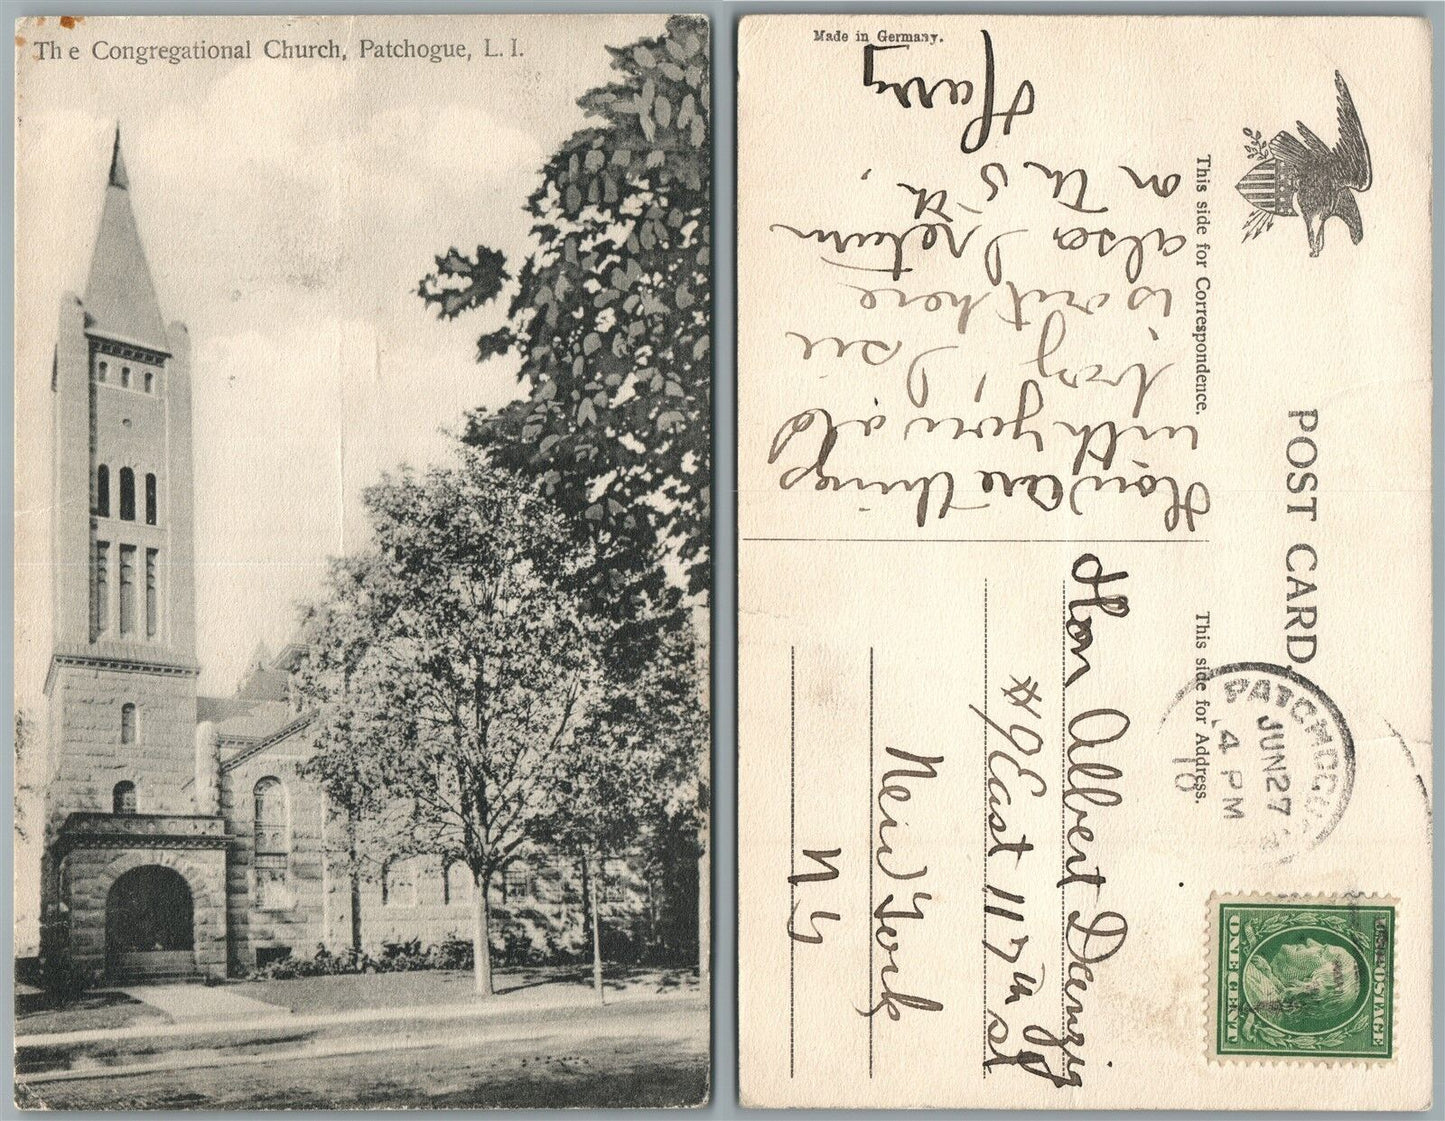 The Congregational Church, Patchogue, L. I.
Made in Germany.
This side for Correspondence.
POST CARD.
This side for Address.
How are things
with you old
boy, I see
is out here
also I return
on th 5th,
Harry
PATCHOGUE
JUN 27
4 PM
10
Hon Albert Danzig
#19 East 117th st
New York
N Y
U.S. POSTAGE
ONE CENT